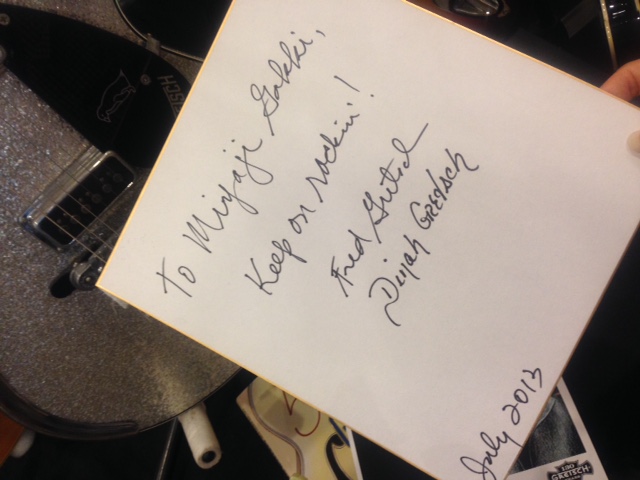 To Miyaji Gakki,
Keep on rockin'!
Fred Gretsch
Dinah GRETSCH
July 2013
GRETSCH
GRETSCH